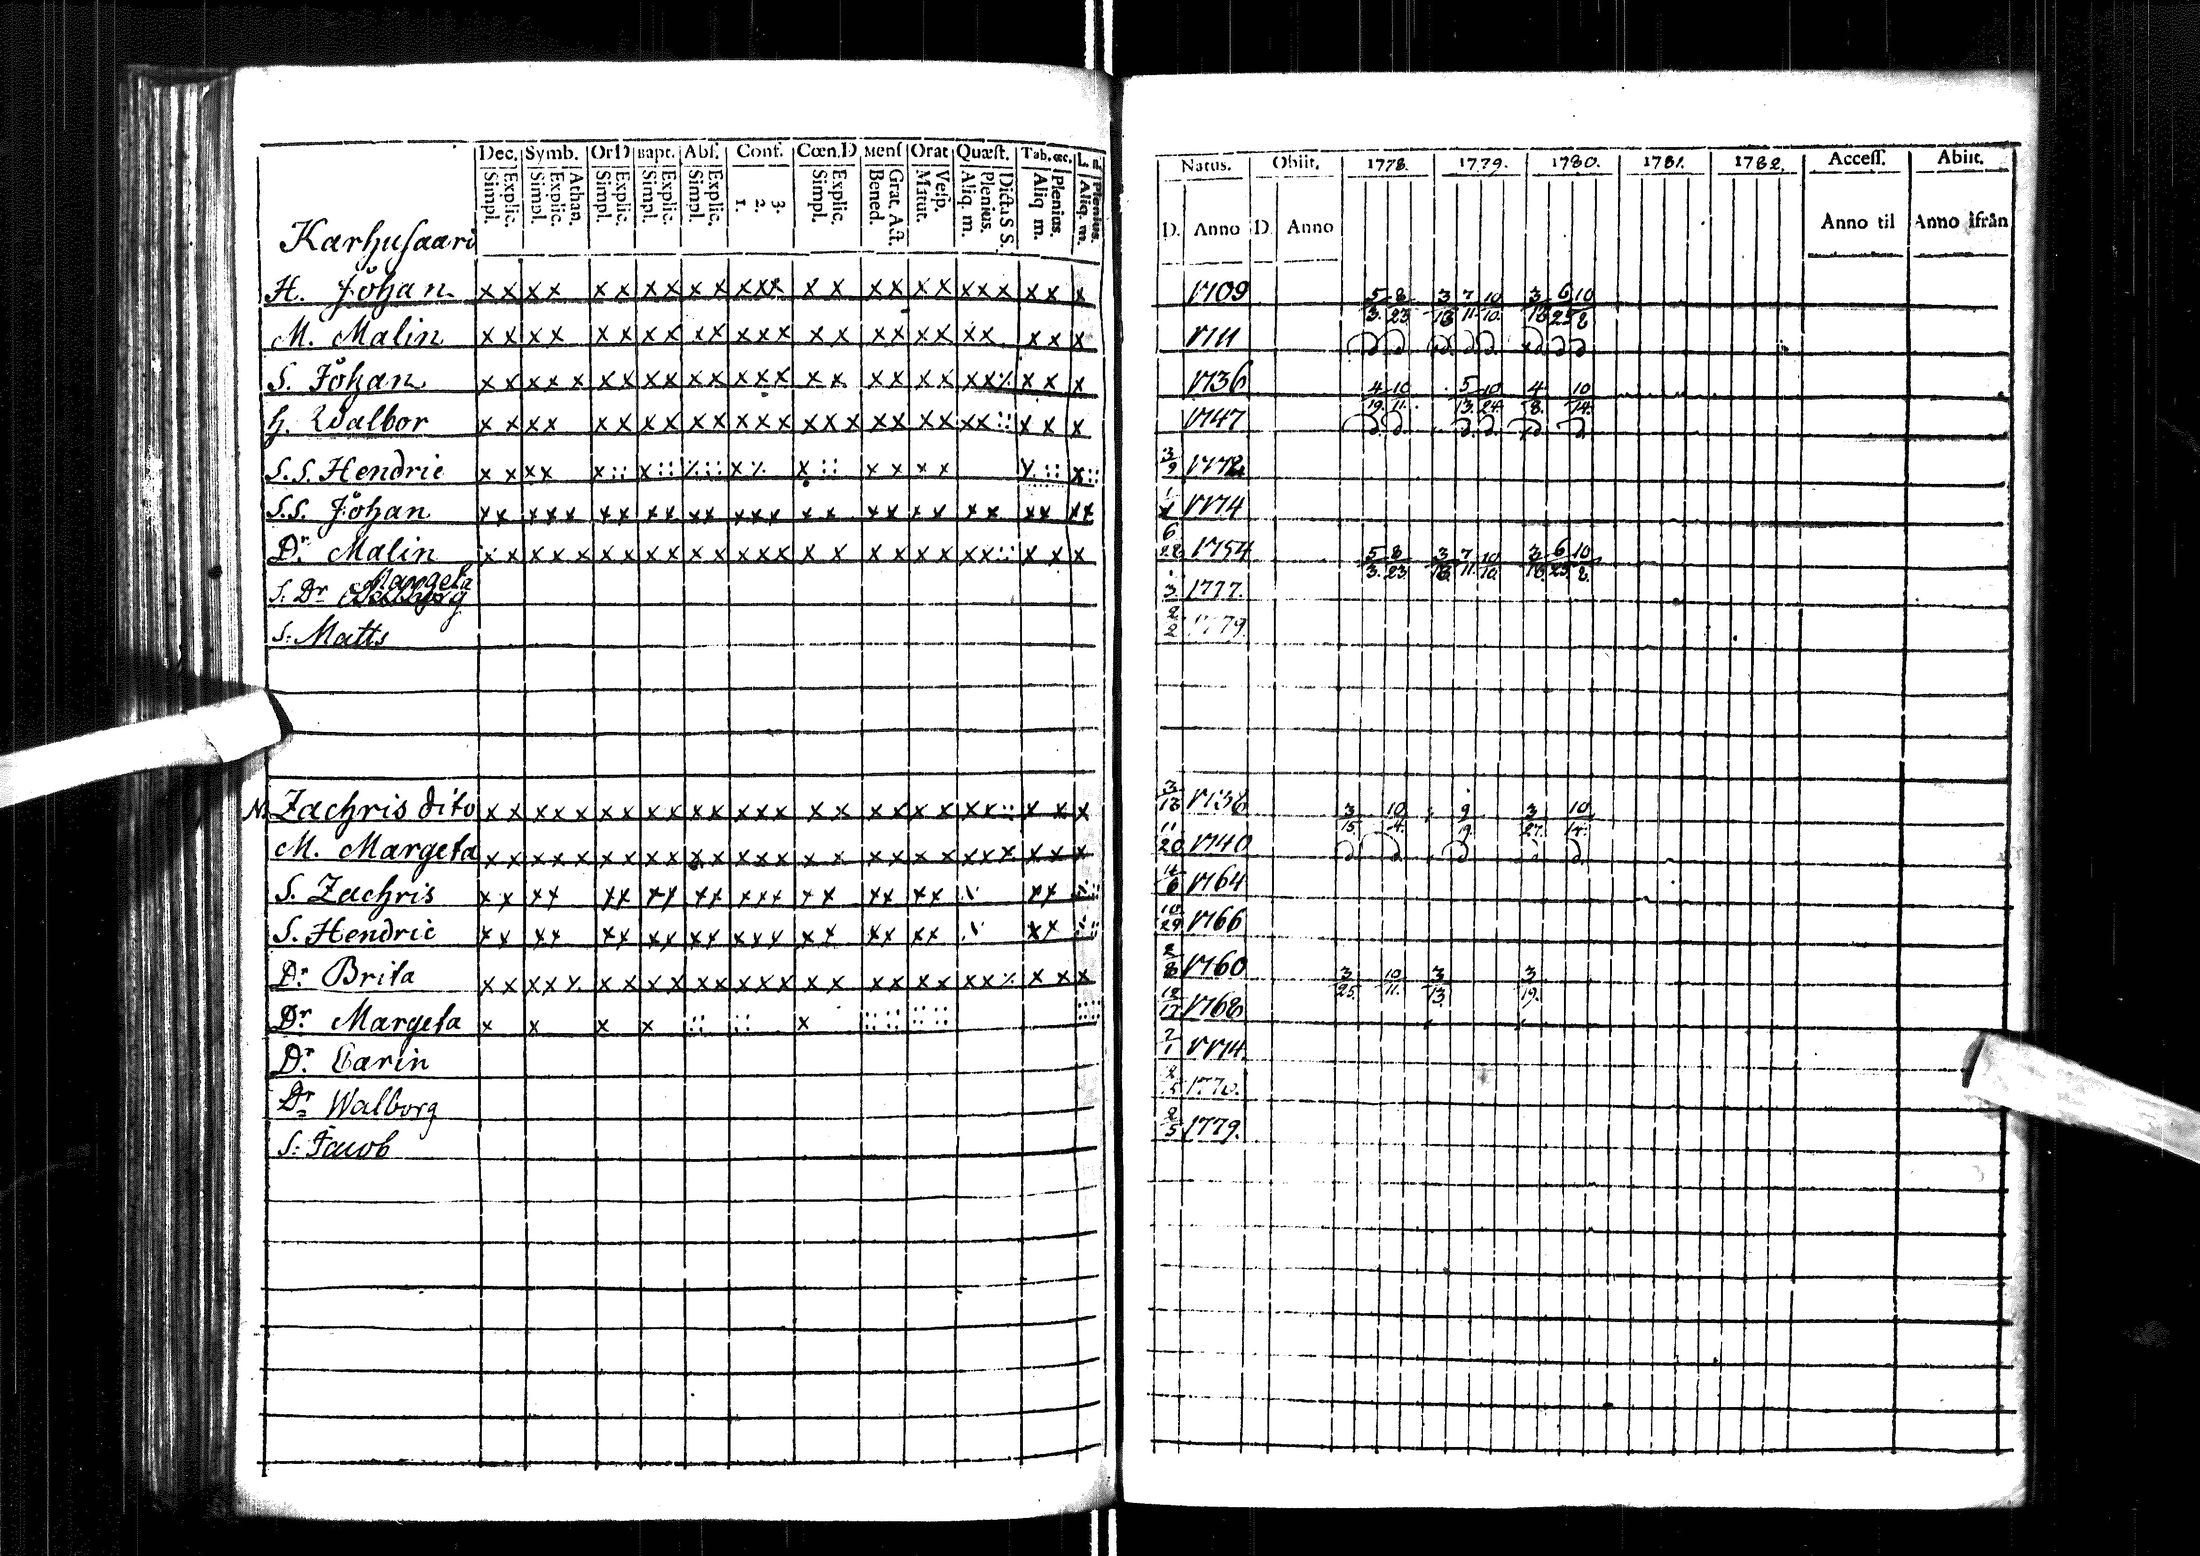 Dec. Symb. OrD Bapt. Abs. Conf. Cœn.D Mens Orat Quæst. Tab. œc. L. n. Natus. Obiit. 1778. 1779. 1780. 1781. 1782. Access. Abiit.
Simpl. Explic. Simpl. Explic. Athan. Simpl. Explic. Simpl. Explic. Simpl. Explic. 1. 2. 3. Simpl. Explic. Bened. Grat. Act. Matut. Vesp. Aliq. m. Plenius. Dicta S S. Aliq m. Plenius. Aliq. m. Plenius. D. Anno D. Anno Anno til Anno ifrån
Karhusaari
H. Johan x x x x x x x x x x x x x x x x x x x x x x x x x 1709 5/3. 8/23 3/13 7/11. 10/10. 3/18 6/25 10/8
M. Malin x x x x x x x x x x x x x x x x x x x x x x x x 1711
S. Johan x x x x x x x x x x x x x x x x x x x x x x ⁒ x x x 1736 4/19. 10/11. 5/13. 10/24. 4/8. 10/14.
h. Walbor x x x x x x x x x x x x x x x x x x x x x x :: x x x 1747
S.S. Hendric x x x x x :: x :: x x x x x 3/9
S.S. Johan x x x x x x x x x x x x x x x x x x x x x x x x x x 1774
Dr. Malin x x x x x x x x x x x x x x x x x x x x x x :: x x x 6/22 1754 5/3. 8/23. 3/13. 7/11. 10/10. 3/18. 6/25. 10/8.
S. Dr Margeta 1777.
S: Matts 2/2 1779.
N. Zachris dito x x x x x x x x x x x x x x x x x x x x x x :: x x x 3/13 1738 3/15. 10/4. 9/19. 3/27. 10/14.
M. Margeta x x x x x x x x x x x x x x x x x x x x x x x x x x 11/20 1740
S. Zachris x x x x x x x x x x x x x x x x x x x x x 1764
S. Hendric x x x x x x x x x x x x x x x x x x x x x 10/29 1766
Dr. Brita x x x x x x x x x x x x x x x x x x x x x x ⁒ x x x 2/8 1760 3/25. 10/11. 3/13. 3/19.
Dr Margeta x x x x :: :: x :: :: :: :: 12/17 1768
Dr. Carin 2/1 1774.
Dr Walborg
S: Jacob 2/5 1779.